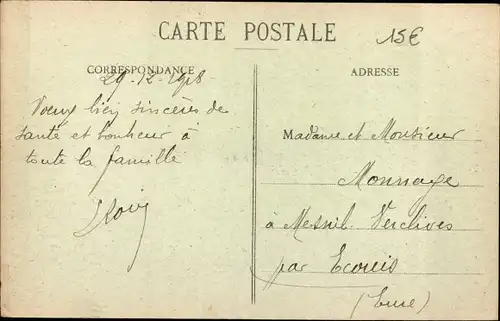 CARTE POSTALE
15€
CORRESPONDANCE
29-12-1918
Voeux bien sincères de
santé et bonheur à
toute la famille
ADRESSE
Madame et Monsieur
Monnage
à Mesnil-Verclives
par Ecouis
(Eure)